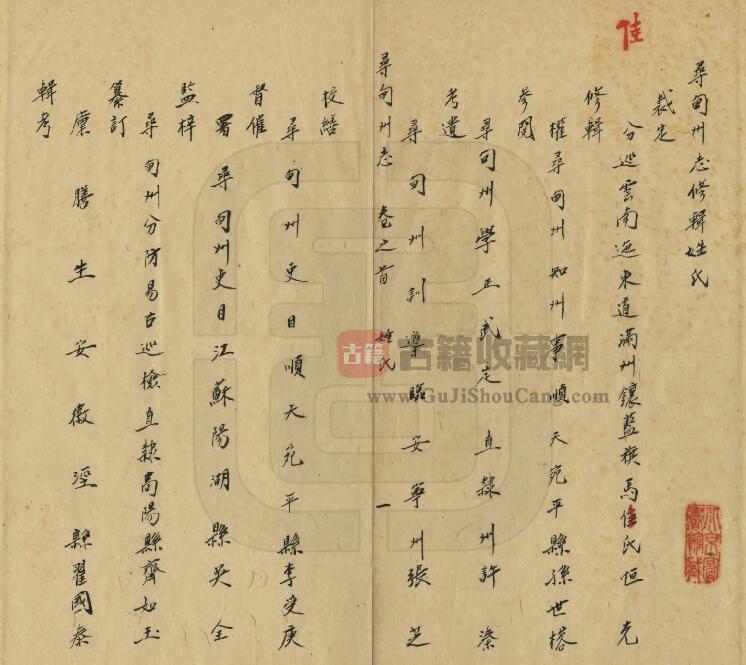 佳
尋甸州志修輯姓氏
裁定
分巡雲南迤東道滿州鑲藍旗馬佳氏恒光
修輯
權尋甸州知州事順天宛平縣孫世榕
參閱
尋甸州學正武定直隸州許溱
考遺
尋甸州訓導臨安寧州張芝
尋甸州志 卷之首 姓氏 一
校繕
尋甸州吏目順天宛平縣李受庚
督催
署尋甸州吏目江蘇陽湖縣吳全
監梓
尋甸州分防易古巡檢直隸高陽縣齊如玉
纂訂
廩膳生安徽涇縣翟國泰
輯考
古籍
古籍收藏網
www.GuJiShouCang.com